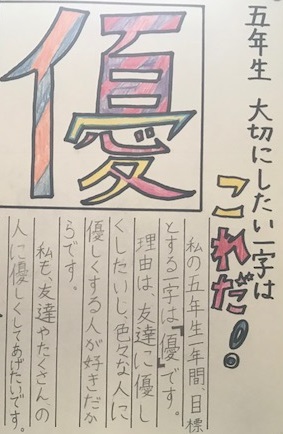 五年生 大切にしたい一字は
これだ!
優
私の五年生一年間、目標
とする一字は「優」です。
理由は、友達に優し
くしたいし、色々な人に
優しくする人が好きだか
らです。
私も、友達やたくさんの
人に優しくしてあげたいです。